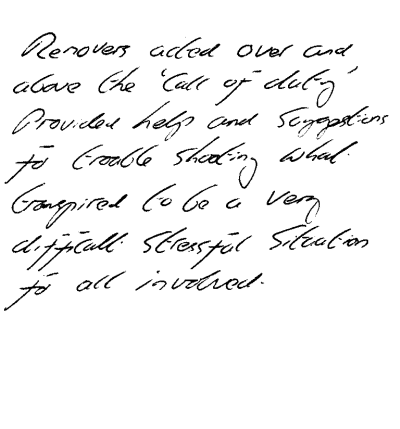 Removers acted over and
above the 'Call of duty'
Provided help and Suggestions
to trouble shooting what
transpired to be a very
difficult stressful Situation
for all involved.